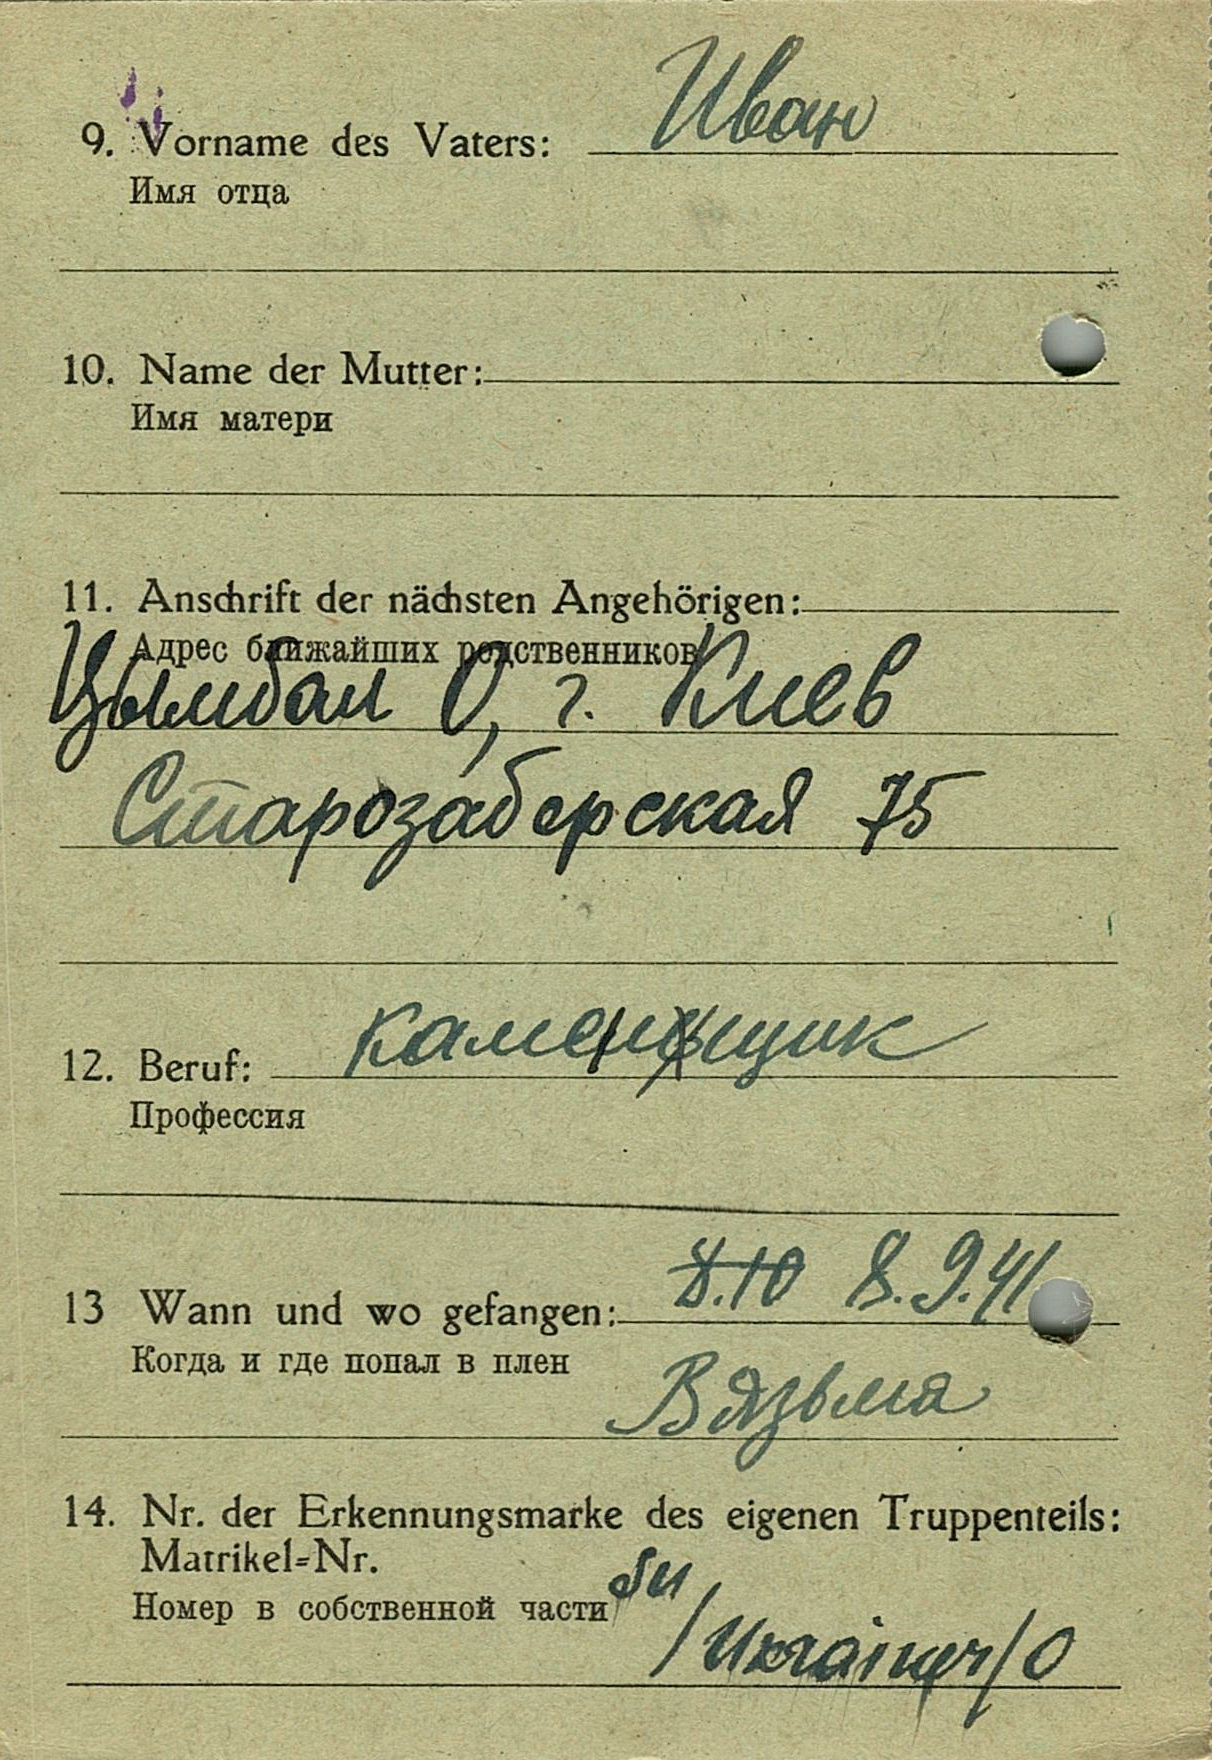 9. Vorname des Vaters: Иван
Имя отца
10. Name der Mutter:
Имя матери
11. Anschrift der nächsten Angehörigen:
Адрес ближайших родственников
Цымбал О, г. Киев
Старозаберская 75
12. Beruf: каменщик
Профессия
13 Wann und wo gefangen: 8.10 8.9.41
Когда и где попал в плен
Вязьма
14. Nr. der Erkennungsmarke des eigenen Truppenteils:
Matrikel-Nr.
Номер в собственной части
/Ukrainer/O